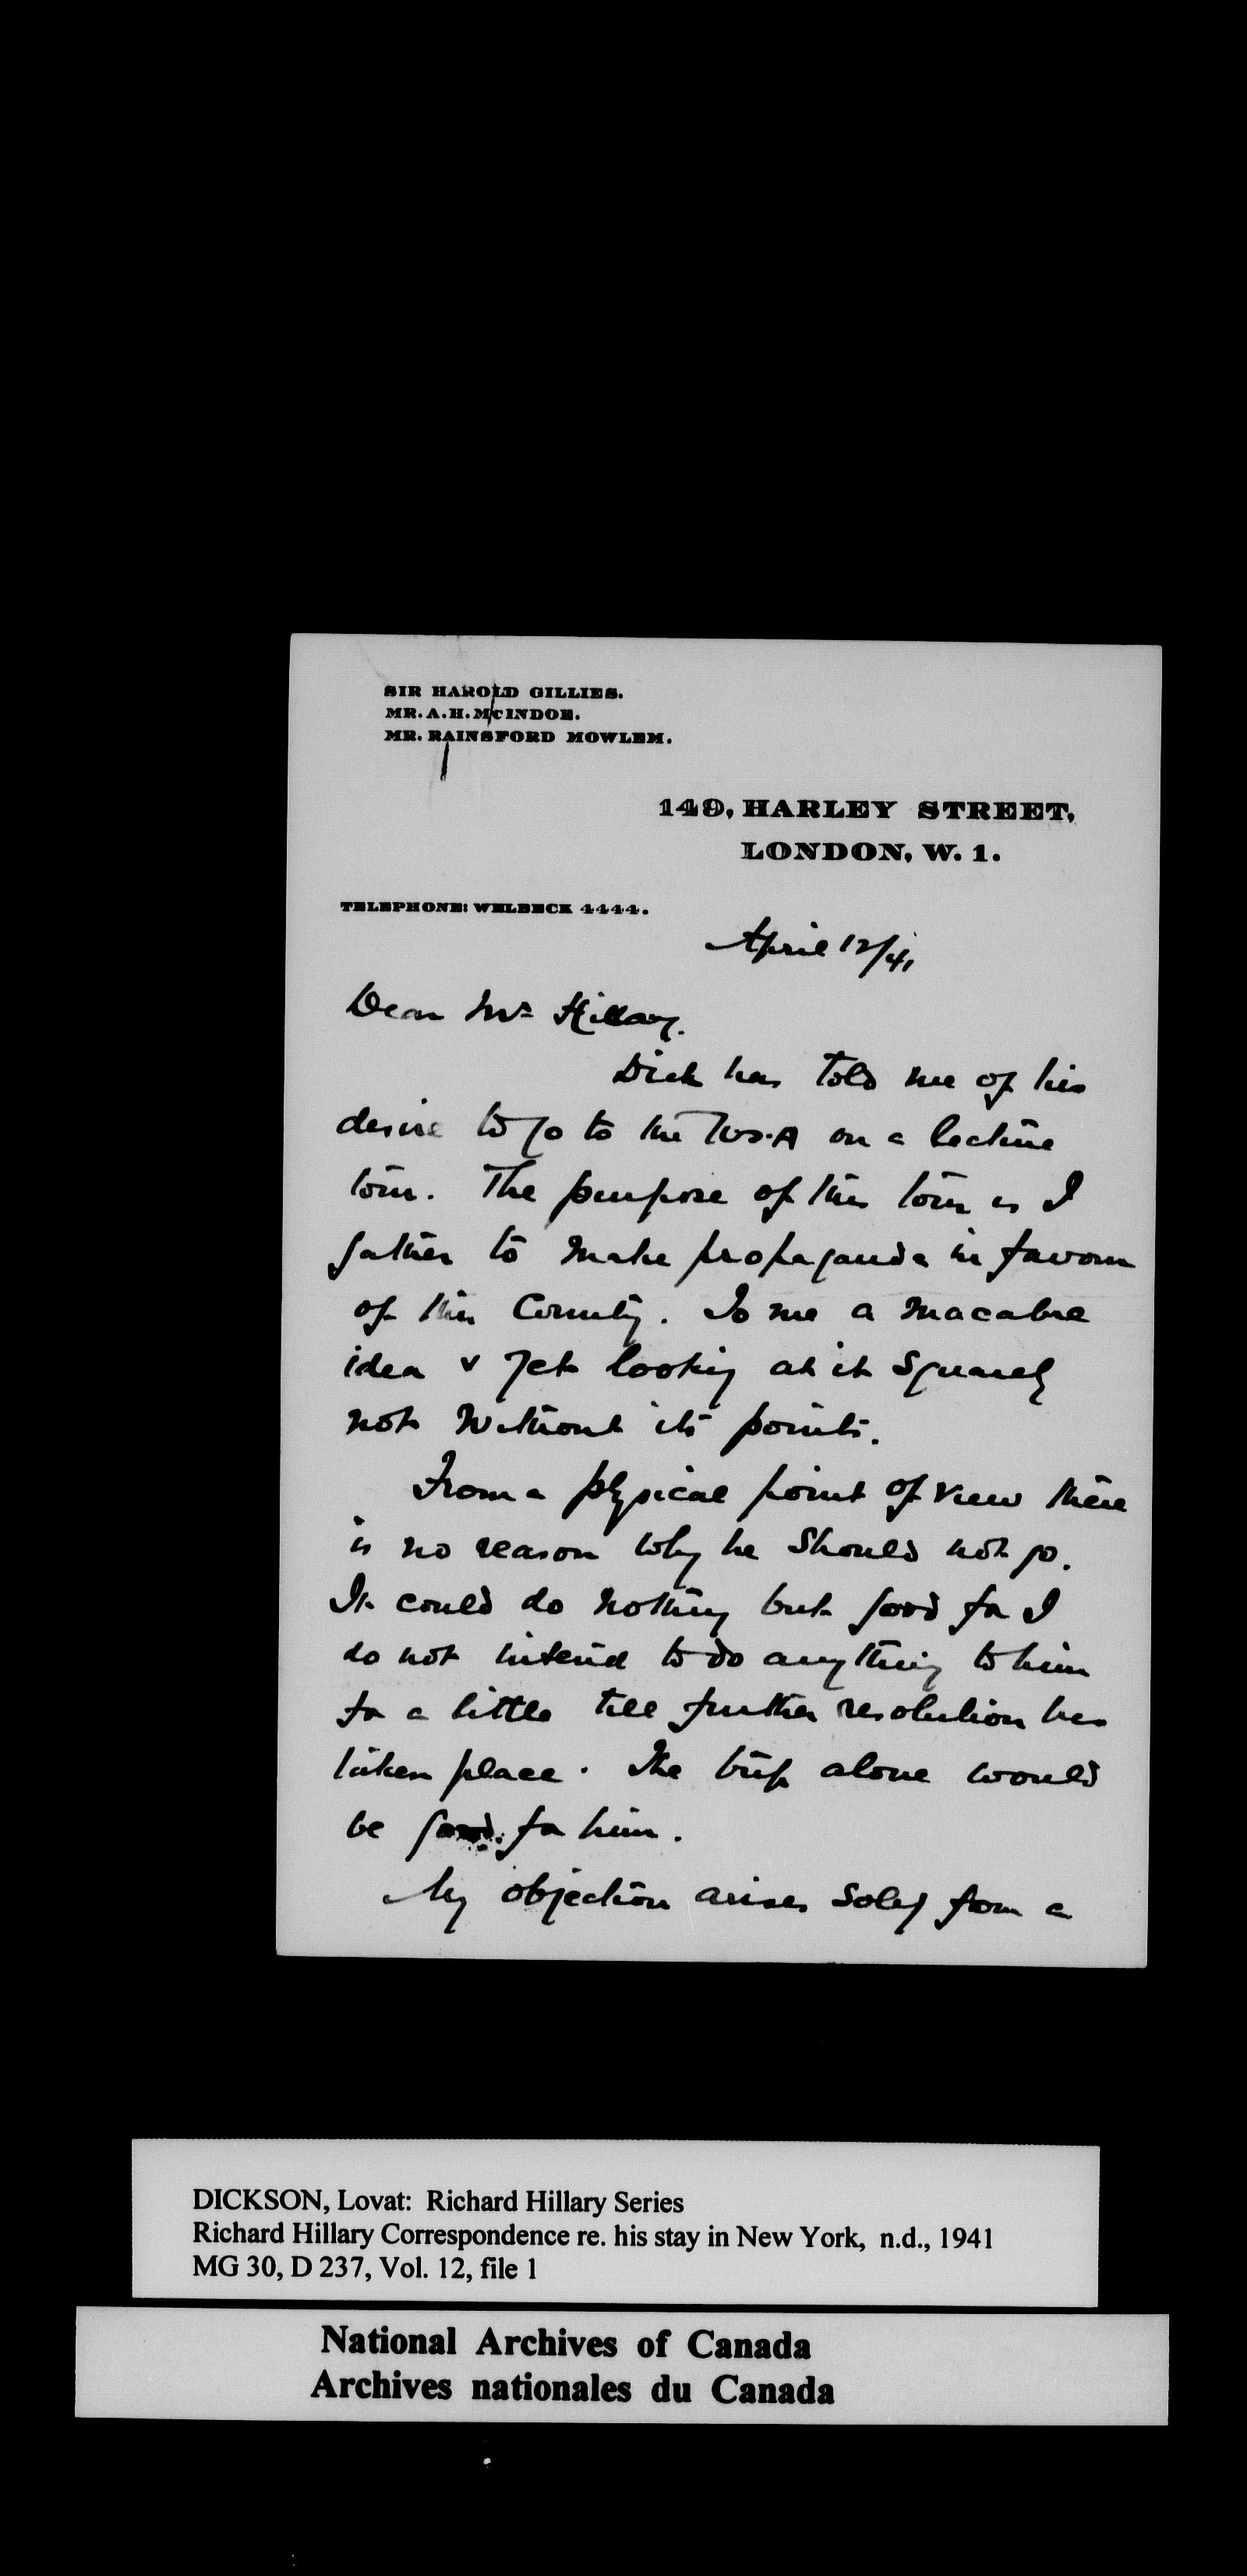 SIR HAROLD GILLIES.
MR. A. H. McINDOE.
MR. RAINSFORD MOWLEM.
149, HARLEY STREET,
LONDON, W. 1.
TELEPHONE: WELBECK 4444.
April 12/41
Dear Mrs Hillary.
Dick has told me of his
desire to go to the U.S.A on a lecture
tour. The purpose of this tour is I
gather to make propaganda in favour
of this Country. To me a macabre
idea & yet looking at it squarely
not without its points.
From a physical point of view there
is no reason why he should not go.
It could do nothing but good for I
do not intend to do anything to him
for a little till further resolution has
taken place. The trip alone would
be good for him.
My objection arises soley from a
DICKSON, Lovat: Richard Hillary Series
Richard Hillary Correspondence re. his stay in New York, n.d., 1941
MG 30, D 237, Vol. 12, file 1
National Archives of Canada
Archives nationales du Canada